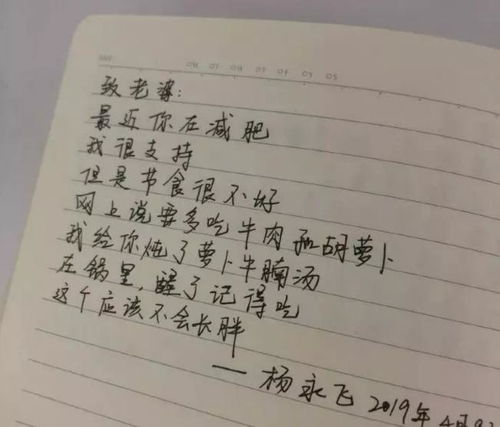 致老婆:
最近你在减肥
我很支持
但是节食很不好
网上说要多吃牛肉和胡萝卜
我给你炖了萝卜牛腩汤
在锅里,醒了记得吃
这个应该不会长胖
——杨永飞 2019年4月